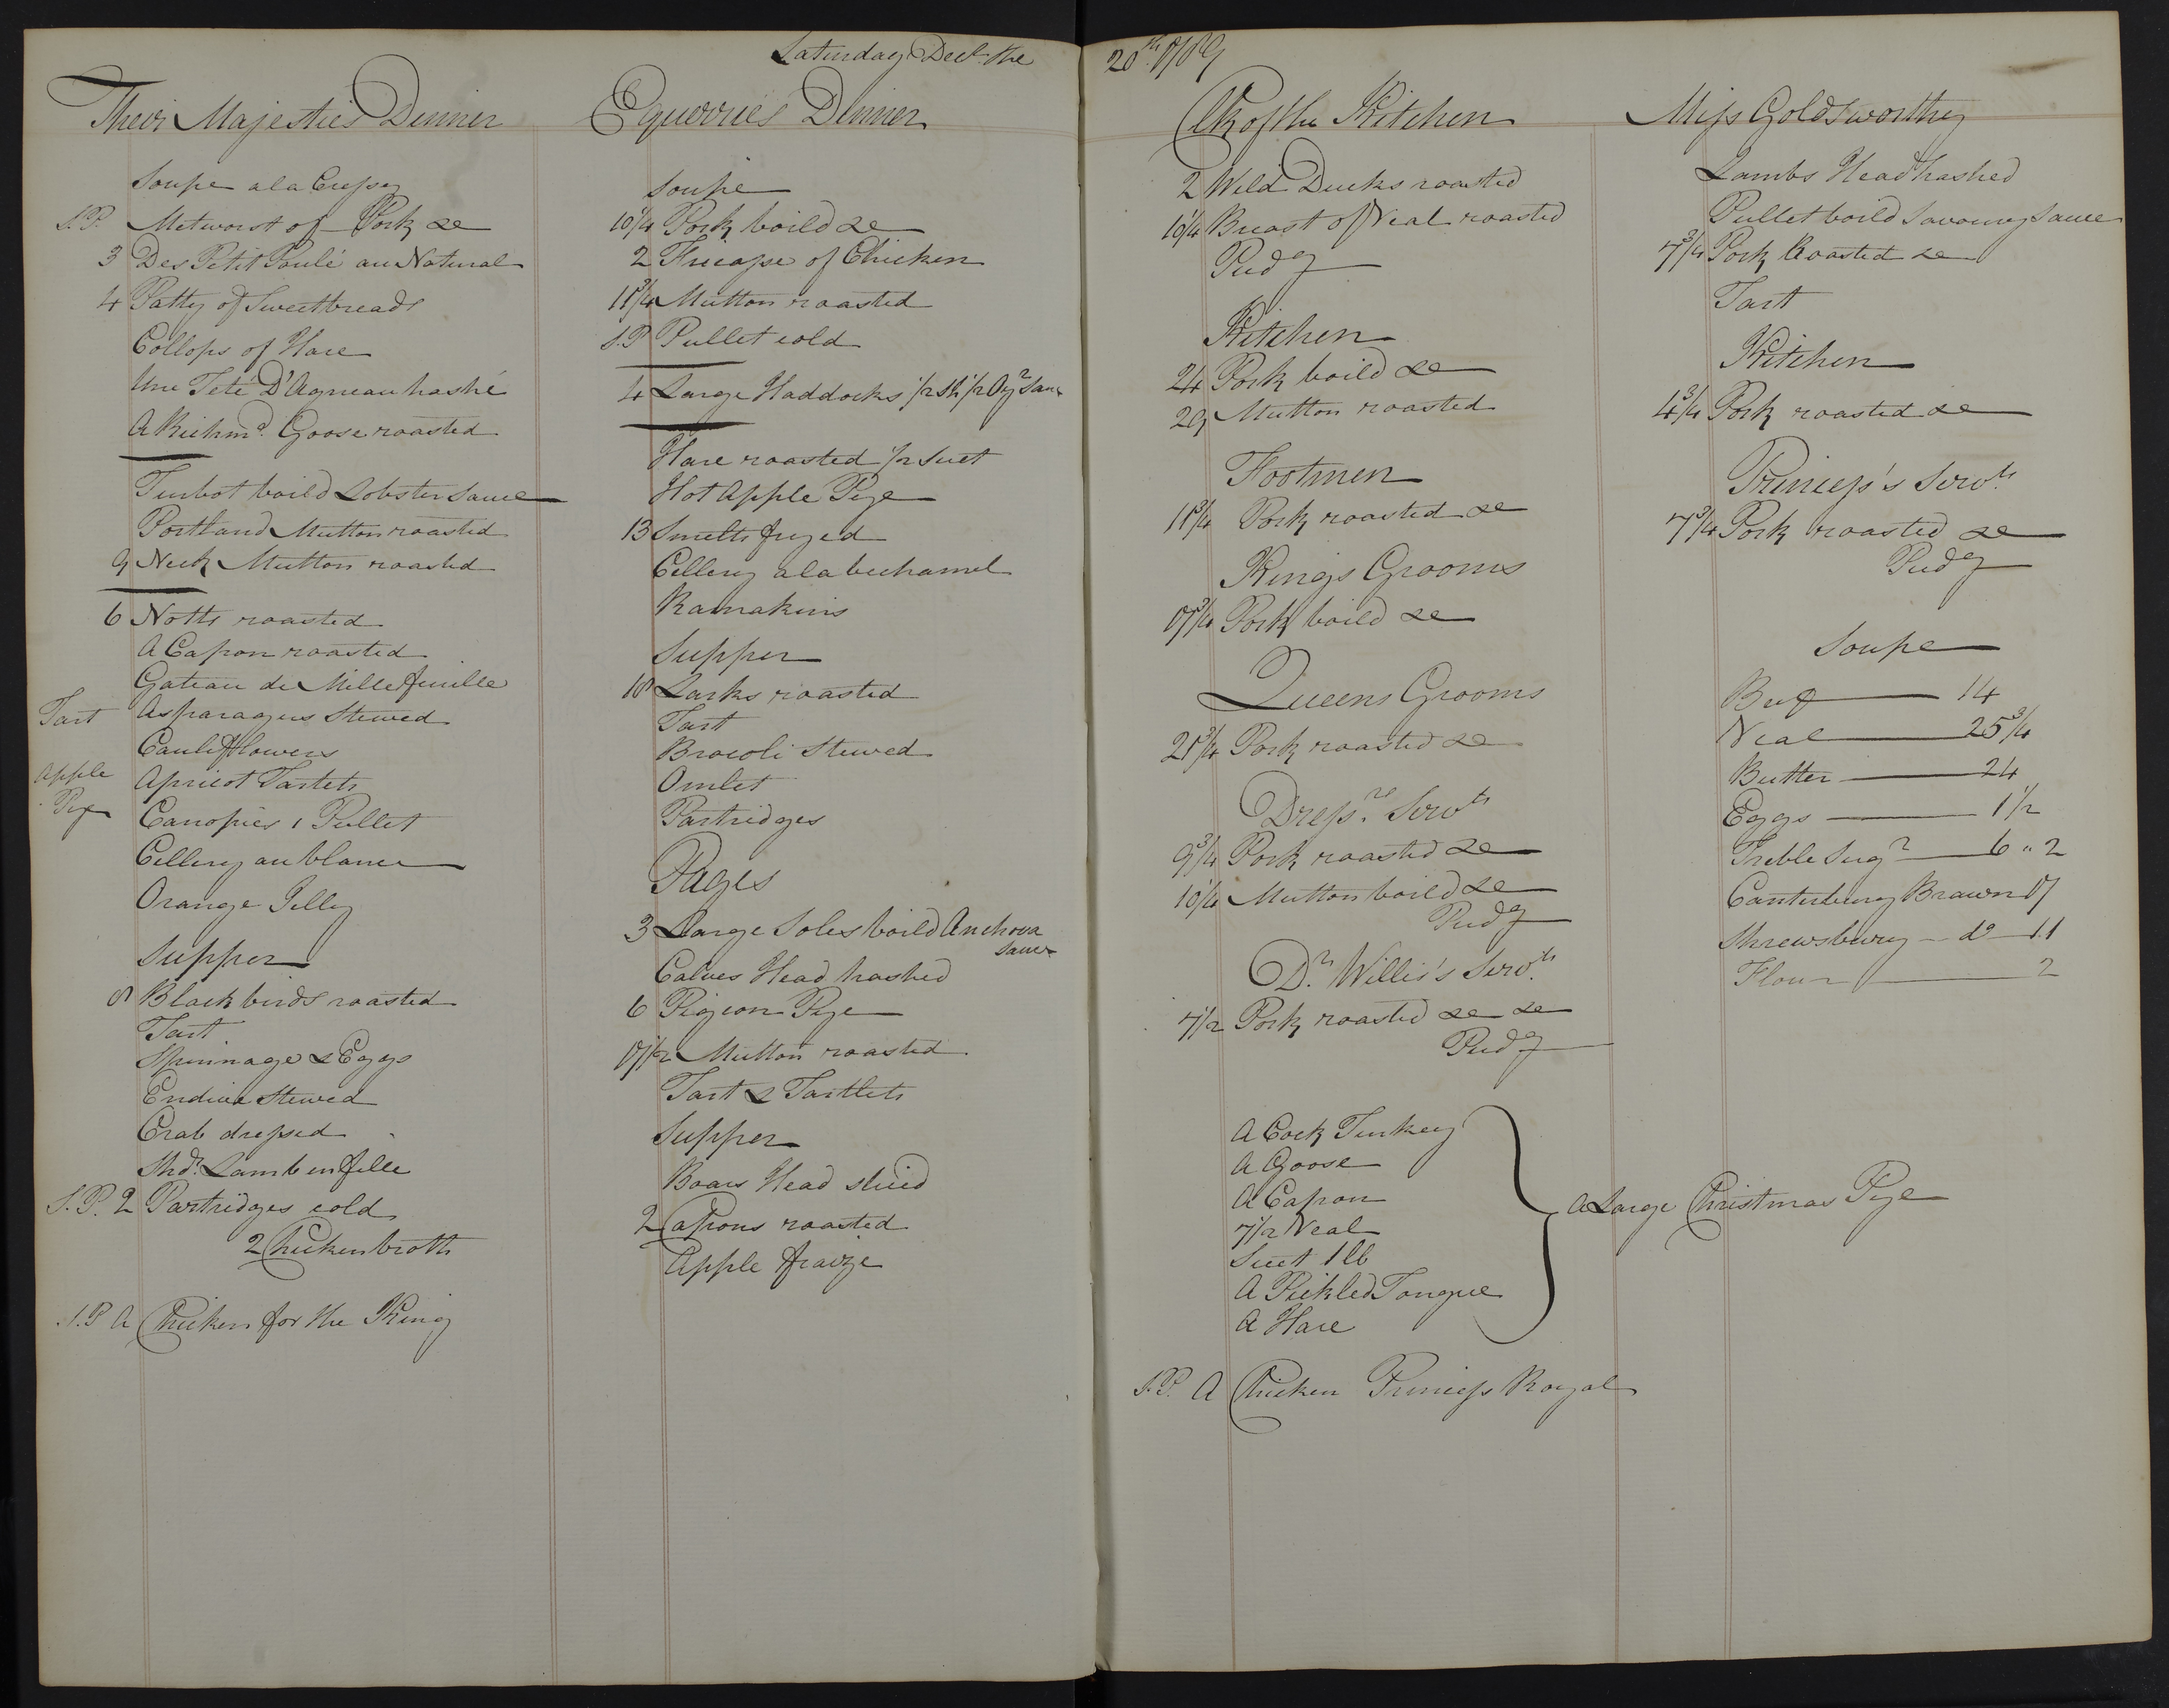 Saturday Decr. the 20th 1788
Their Majesties Dinner
Soupe a la Cressy
S.P. Metworst of Pork &c
3 Des Petit Poulé au Natural
4 Patty of Sweetbreads
Collops of Hare
Une Teté D'Agneau hashé
A Richmd. Goose roasted
Turbot boild Lobster Sauce
Portland Mutton roasted
9 Neck Mutton roasted
6 Notts roasted
A Capon roasted
Gateau de Millefeuille
Tart Asparagus Stewed
Cauliflowers
Apple Pye
Apricot Tartets
Canopies 1 Pullet
Cellery au blanc
Orange Jelly
Supper
8 Blackbirds roasted
Tart
Spinnage & Eggs
Endive Stewed
Crab dressed
Shdr. Lamb en felle
S.P. 2 Partridges cold
2 Chicken broth
S.P A Chicken for the King
Equerries Dinner
Soupe
10 1/4 Pork boild &c
2 Fricasse of Chicken
11 3/4 Mutton roasted
S.P Pullet cold
4 Large Haddocks 1/2 Sh 1/2 Oyr Sauce
Hare roasted 1/2 Suet
Hot Apple Pye
13 Smelts fryed
Cellery a la bechamel
Ramakins
Supper
18 Larks roasted
Tart
Brocoli Stewed
Omlet
Partridges
Pages
3 Large Soles boild Anchova Sauce
Calves Head hashed
6 Pigeon Pye
17 1/2 Mutton roasted
Tart & Tartlets
Supper
Boars Head sliced
2 Capons roasted
Apple fraize
Clk of the Kitchen
2 Wild Ducks roasted
10 1/4 Breast of Veal roasted
Pudg
Kitchen
24 Pork boild &c
29 Mutton roasted
Footmen
11 3/4 Pork roasted &c
Kings Grooms
17 3/4 Pork boild &c
Queens Grooms
21 3/4 Pork roasted &c
Dressrs. Servts
9 3/4 Pork roasted &c
10 1/4 Mutton boild &c
Pudg
Dr. Willis's Servts.
7 1/2 Pork roasted &c &c
Pudg
A Cock Turkey
A Goose
A Capon
7 1/2 Veal
Suet 1 lb
A Pickled Tongue
A Hare
A Large Christmas Pye
S.P. A Chicken Princess Royal
Miss Goldsworthy
Lambs Head hashed
Pullet boild Savoury Sauce
7 3/4 Pork Roasted &c
Tart
Kitchen
4 3/4 Pork roasted &c
Princess's Servts.
7 3/4 Pork roasted &c
Pudg
Soupe
Beef 14
Veal 25 3/4
Butter 24
Eggs 1 1/2
Treble Sugr 6 " 2
Canterbury Brawn 17
Shrewsbury do 11
Flour 2